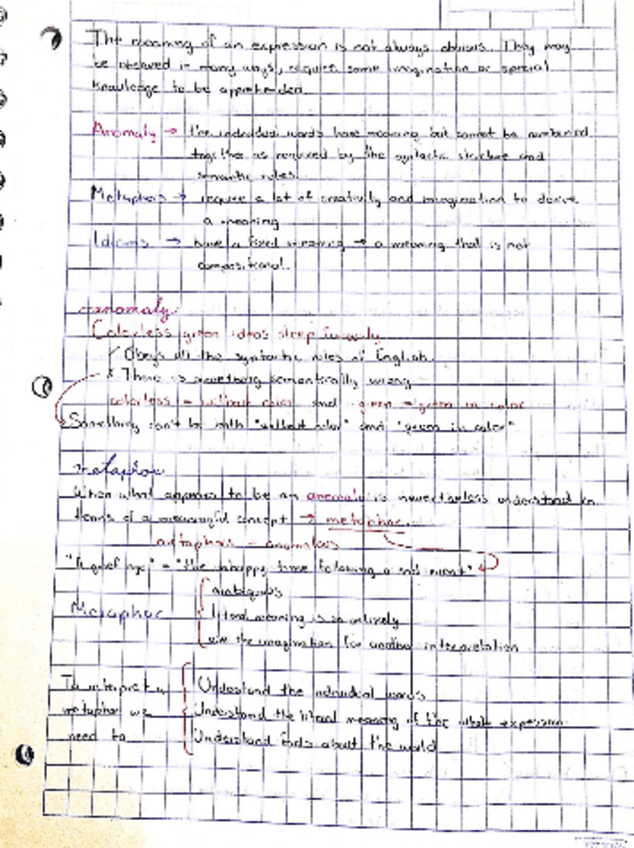 The meaning of an expression is not always obvious. They may
be obscured in many ways, require some imagination or special
knowledge to be apprehended.
Anomaly → the individual words have meaning but cannot be combined
together as required by the syntactic structure and
semantic rules.
Metaphors → require a lot of creativity and imagination to derive
a meaning
Idioms → have a fixed meaning → a meaning that is not
compositional.
anomaly
Colorless green ideas sleep furiously
✓ Obeys all the syntactic rules of English.
✗ There is something semantically wrong
colorless = without color and green = green in color
Something can't be both "without color" and "green in color"
metaphor
When what appears to be an anomaly is nevertheless understood in
terms of a meaningful concept → metaphor.
metaphors = anomalous
"A grief ago" = "the unhappy time following a sad event"
ambiguous
Metaphor literal meaning is so unlikely
use the imagination for another interpretation
To interpret a Understand the individual words
metaphor we Understand the literal meaning of the whole expression
need to Understand facts about the world